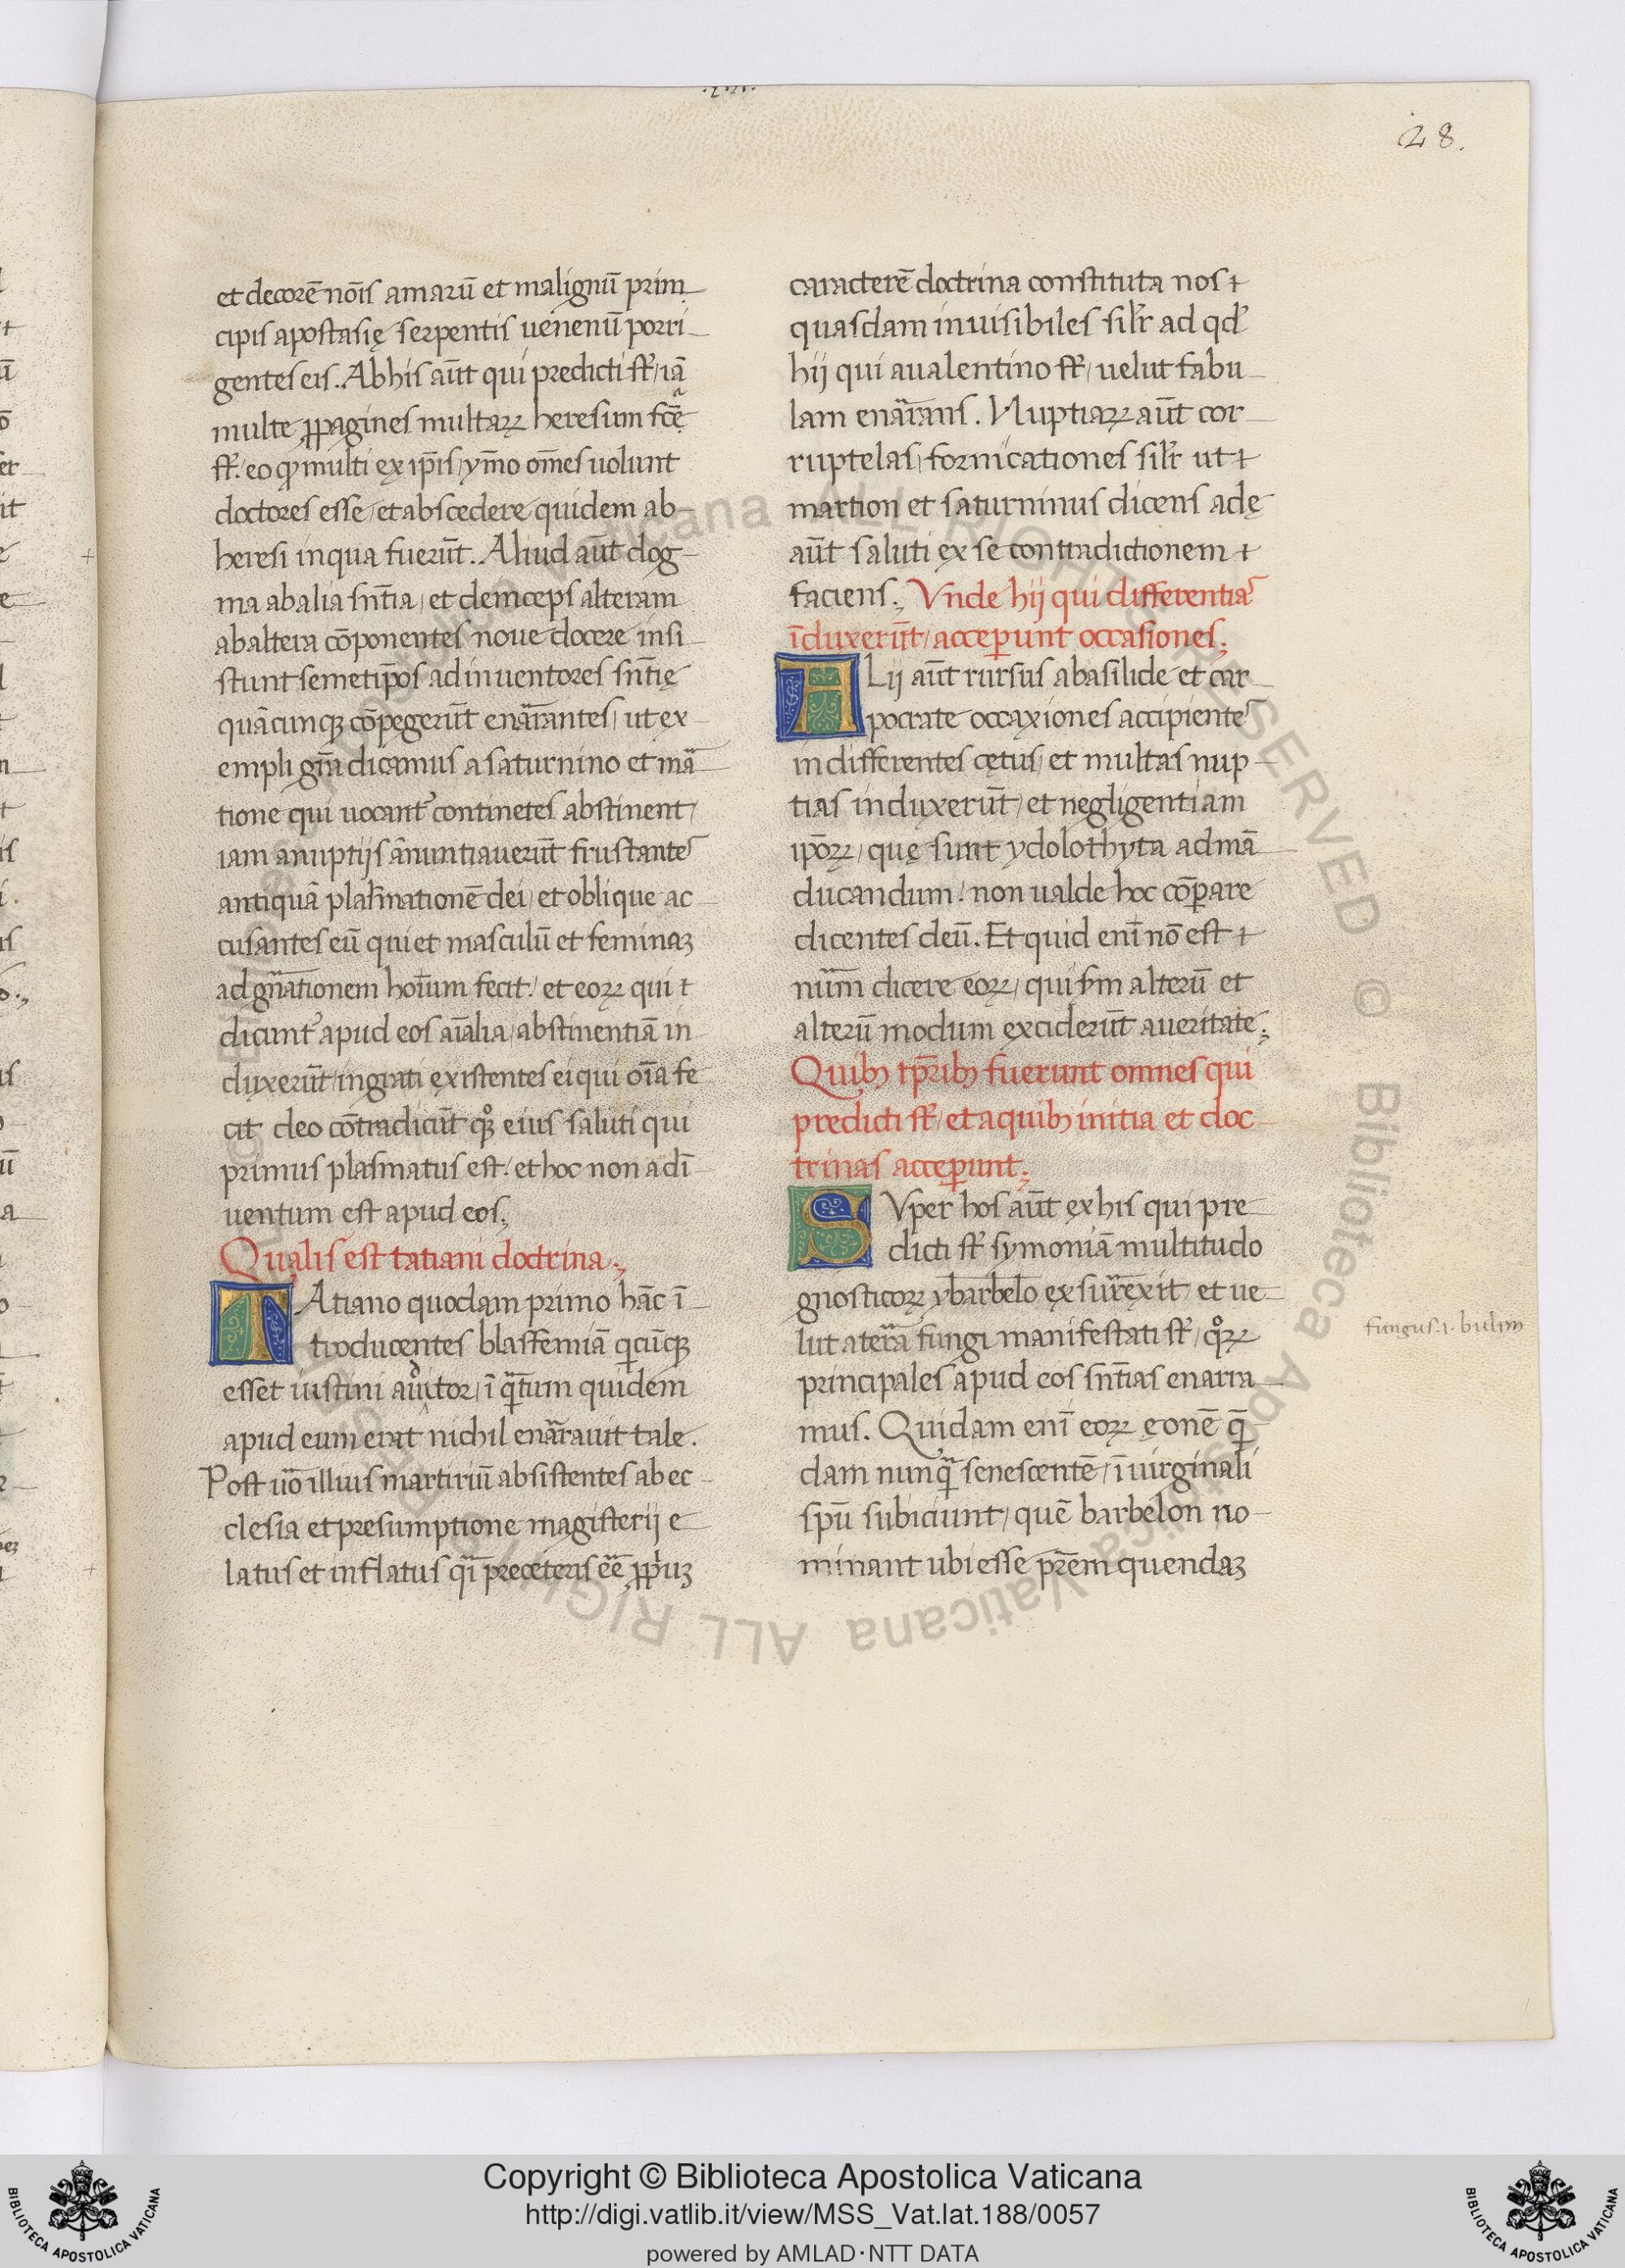 28.
et decorē noīs amarū et malignū prin
cipis apostasię serpentis uenenū porri
gentes eis. Ab his aūt qui predicti st̄ / iā
multe ꝓpagines multaꝝ heresum fcē
st̄. eo ꝙ multi ex ip̄is / ym̄o om̄es uolunt
doctores esse / et abscedere quidem ab
heresi in qua fuerūt. Aliud aūt dog
ma ab alia sn̄tia / et deinceps alteram
ab altera cōponentes noue docere insi
stunt semetip̄os adinuentores sn̄tię
quācunqꝫ cōpegerūt enarrantes / ut ex
empli gr̄a dicamus a saturnino et mar
tione qui uocant᷑ continetes abstinent /
iam a nuptijs ānuntiauerūt frustantes
antiquā plasmationē dei / et oblique ac
cusantes eū qui et masculū et feminaꝫ
ad gn̄ationem hoīum fecit. / et eoꝝ qui t
dicunt᷑ apud eos aīalia / abstinentiā in
duxerūt / ingrati existentes ei qui oīa fe
cit deo cōtradicūt qꝫ eius saluti qui
primus plasmatus est. / et hoc non adī
uentum est apud eos.,
Qualis est tatiani doctrina.,
TAtiano quodam primo hāc ī
troducentes blasfemiā qicūqꝫ
esset iustini auditor / ī qntum quidem
apud eum erat nichil enarrauit tale.
Post uo illius martiriū absistentes ab ec
clesia et presumptione magisterij e
latus et inflatus qi preceteris eē ꝓpriuꝫ
caracterē doctrina constituta nos t
quasdam inuisibiles silr ad qd
hij qui a ualentino st̄ / uelut fabu
lam enarrans. Nuptiaꝝ aūt cor
ruptelas / fornicationes silr ut t
martion et saturninus dicens adę
aūt saluti ex se contradictionem t
faciens., Vnde hij qui differentias
īduxerūt / acceperunt occasiones.,
ALij aūt rursus a basilide et car
pocrate occaxiones accipientes
indifferentes cętus / et multas nup
tias induxerūt / et negligentiam
ip̄oꝝ / quę sunt ydolothyta ad mā
ducandum. / non ualde hoc cōpare
dicentes deū. Et quid enī nō est t
num dicere eoꝝ / qui sm alterū et
alterū modum exciderūt a ueritate.,
Quibꝫ tp̄ribꝫ fuerunt omnes qui
predicti st̄ / et a quibꝫ initia et doc
trinas acceperunt.,
SVper hos aūt ex his qui pre
dicti st̄ symoniā multitudo
gnosticoꝝ ybarbelo exsurrexit / et ue
lut a terra fungi manifestati st̄ / qoꝝ
principales apud eos sn̄tias enarra
mus. Quidam enī eoꝝ ęonē q̄
dam nunqa senescentē / ī uirginali
spū subiciunt / quē barbelon no
minant ubi esse pr̄em quendaꝫ
fungus .i. bulim
Copyright © Biblioteca Apostolica Vaticana
http://digi.vatlib.it/view/MSS_Vat.lat.188/0057
powered by AMLAD·NTT DATA